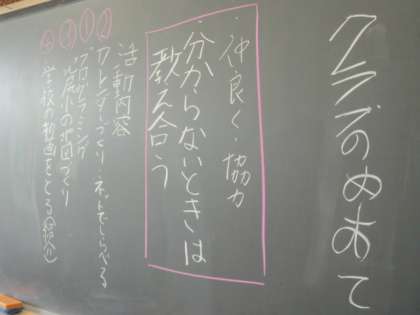 クラブのめあて
・仲良く・協力
・分からないときは
教え合う
活動内容
カレンダーづくり・ネットでしらべる
プログラミング
小の地図づくり
学校の動画をとる(紹介)